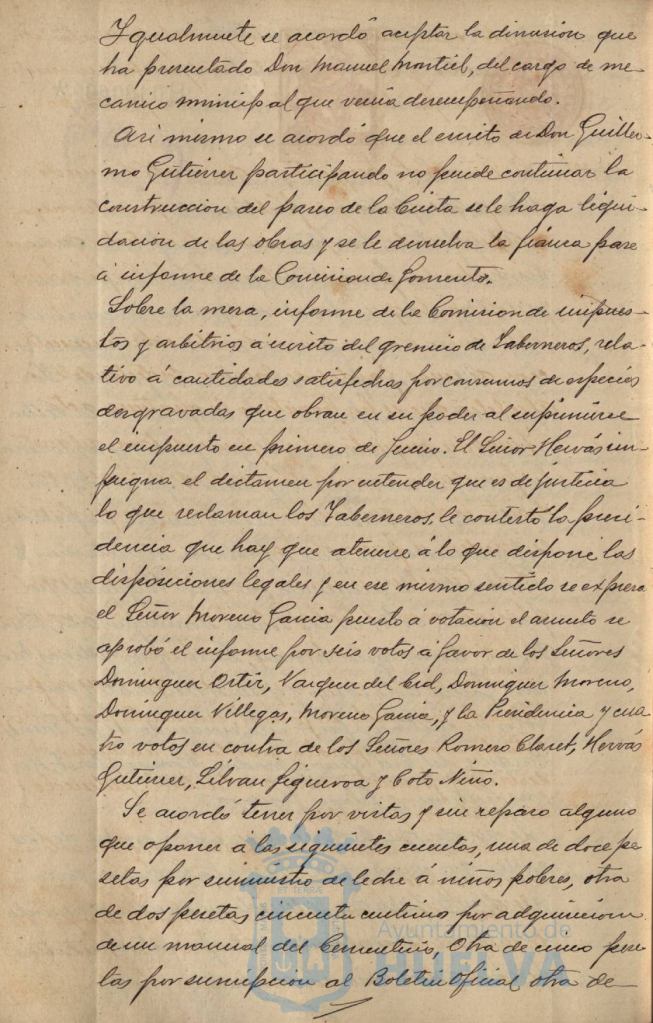 Igualmente se acordó aceptar la dimision que
ha presentado Don Manuel Montiel, del cargo de me
canico municipal que venia desempeñando.
Asi mismo se acordó que el escrito de Don Guiller-
mo Gutierrez participando no puede continuar la
construccion del paseo de la Cinta se le haga liqui-
dacion de las obras y se le devuelva la fianza pase
á informe de la Comision de Fomento.
Sobre la mesa, informe de la Comision de impues-
tos y arbitrios á escrito del gremio de Taberneros, rela-
tivo á cantidades satisfechas por consumos de especies
desgravadas que obran en su poder al suprimirse
el impuesto en primero de Junio. El Señor Hervás im-
pugna el dictamen por entender que es de justicia
lo que reclaman los Taberneros, le contestó la presi-
dencia que hay que atenerse á lo que dispone las
disposiciones legales y en ese mismo sentido se expresa
el Señor Moreno Garcia puesto á votacion el asunto se
aprobó el informe por seis votos á favor de los Señores
Dominguez Ortiz, Vazquez del Cid, Dominguez Moreno,
Dominguez Villegas, Moreno Garcia, y la Presidencia y cua
tro votos en contra de los Señores Romero Claret, Hervás
Gutierrez, Silvan Figueroa y Coto Niño.
Se acordó tener por vistas y sin reparo alguno
que oponer á las siguientes cuentas, una de doce pe
setas por suministro de leche á niños pobres, otra
de dos pesetas cincuenta centimos por adquisicion
de un manual del Cementerio, Otra de cinco pese
tas por suscripcion al Boletin Oficial otra de
Ayuntamiento de
HUELVA